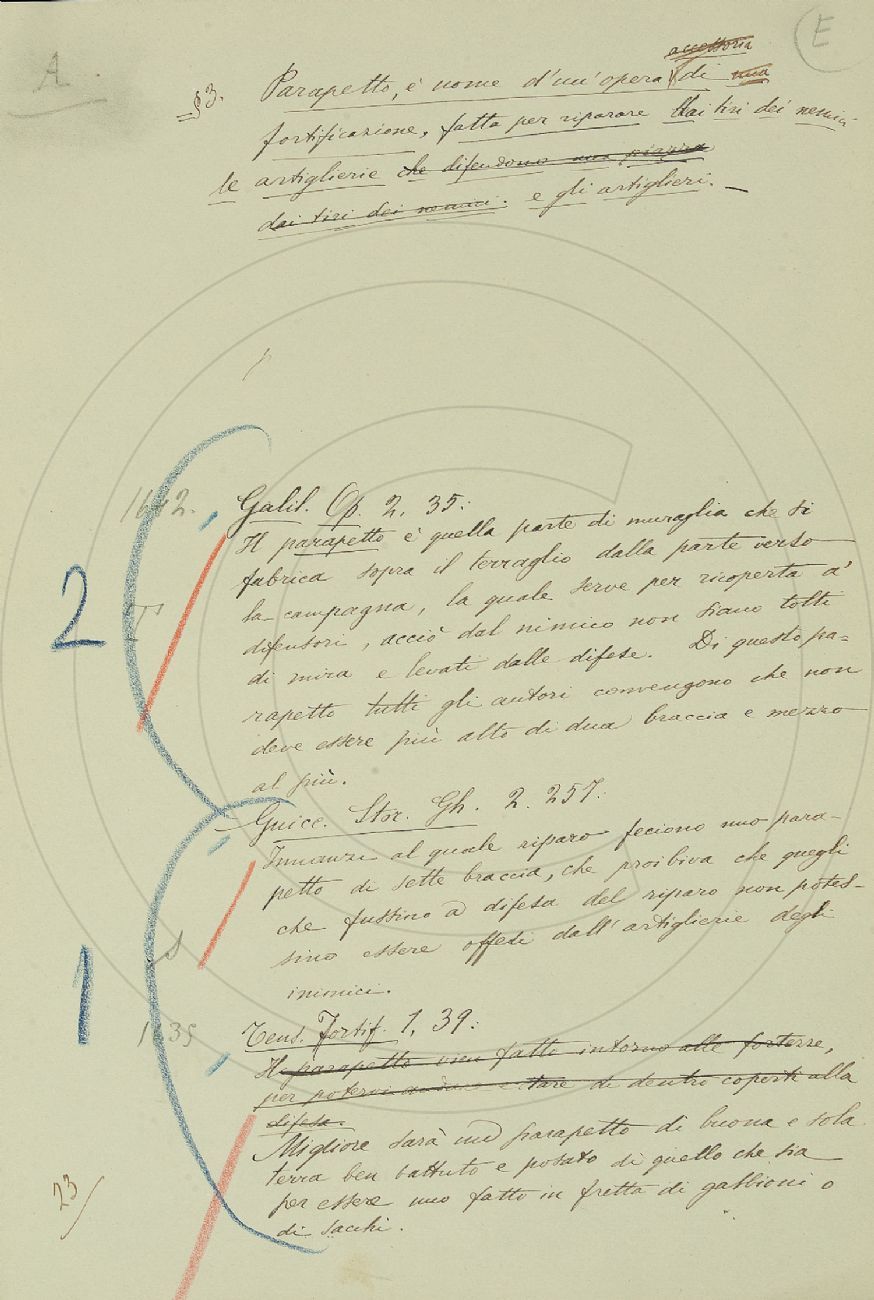 A
E
accessoria
§3. Parapetto, è nome d'un'opera di una
fortificazione, fatta per riparare dai tiri dei nemici
le artiglierie che difendono una piazza
dai tiri dei nemici. e gli artiglieri. —
1642.
Galil. Op. 2, 35:
Il parapetto è quella parte di muraglia che si
fabrica sopra il terraglio dalla parte verso
la campagna, la quale serve per ricoperta a'
2
T
difensori, acciò dal nimico non siano tolti
di mira e levati dalle difese. Di questo pa-
rapetto tutti gli autori convengono che non
deve essere più alto di dua braccia e mezzo
al più.
Guicc. Stor. Gh. 2. 257:
Innanzi al quale riparo feciono uno para-
petto di sette braccia, che proibiva che quegli
che fussino a difesa del riparo non potes-
sino essere offesi dall'artiglierie degli
inimici.
1
S
1635
Tens. Fortif. 1, 39:
Il parapetto vien fatto intorno alle fortezze,
per potervi andare e stare di dentro coperti alla
difesa.
Migliore sarà un parapetto di buona e sola
terra ben battuto e posato di quello che sia
per essere uno fatto in fretta di gabbioni o
di sacchi.
23